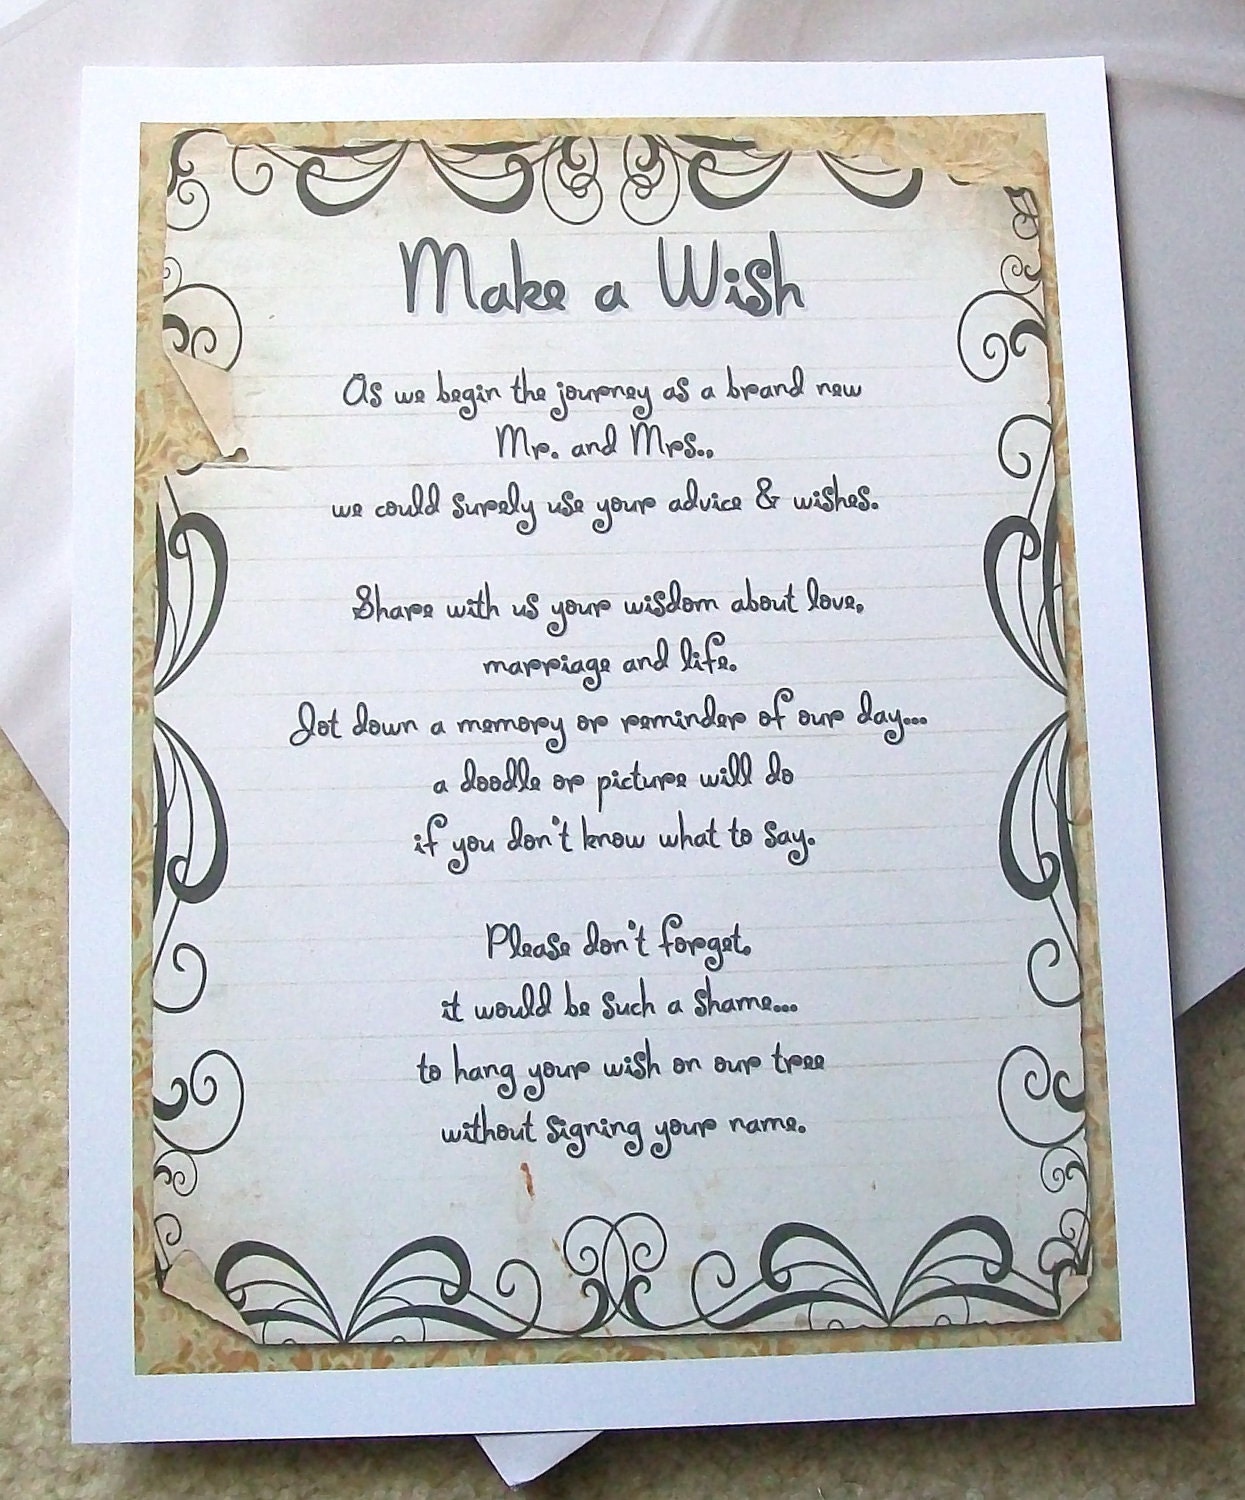 Make a Wish
As we begin the journey as a brand new
Mr. and Mrs.,
we could surely use your advice & wishes.
Share with us your wisdom about love,
marriage and life.
Jot down a memory or reminder of our day...
a doodle or picture will do
if you don't know what to say.
Please don't forget,
it would be such a shame...
to hang your wish on our tree
without signing your name.